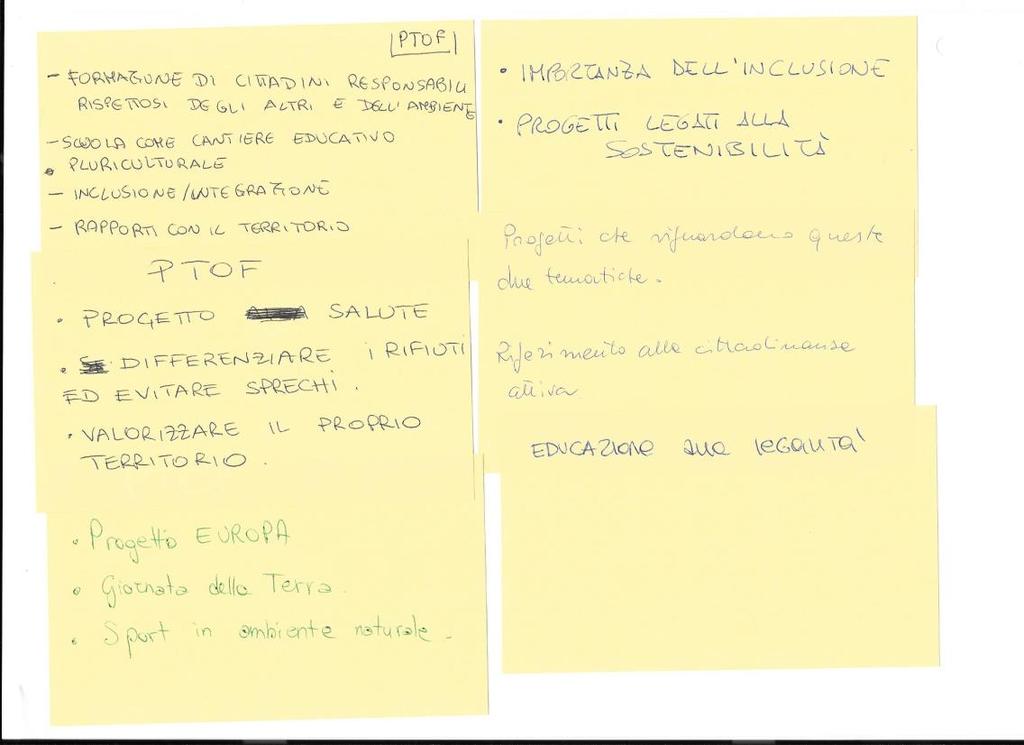 PTOF
- FORMAZIONE DI CITTADINI RESPONSABILI
RISPETTOSI DEGLI ALTRI E DELL'AMBIENTE
- SCUOLA COME CANTIERE EDUCATIVO
• PLURICULTURALE
- INCLUSIONE/INTEGRAZIONE
- RAPPORTI CON IL TERRITORIO
PTOF
• PROGETTO SALUTE
• DIFFERENZIARE i RIFIUTI
ED EVITARE SPRECHI.
• VALORIZZARE IL PROPRIO
TERRITORIO.
• Progetto EUROPA
• Giornata della Terra.
• Sport in ambiente naturale.
• IMPORTANZA DELL'INCLUSIONE
• PROGETTI LEGATI ALLA
SOSTENIBILITÀ
Progetti che riguardano queste
due tematiche.
Riferimento alla cittadinanza
attiva
EDUCAZIONE ALLA LEGALITA'